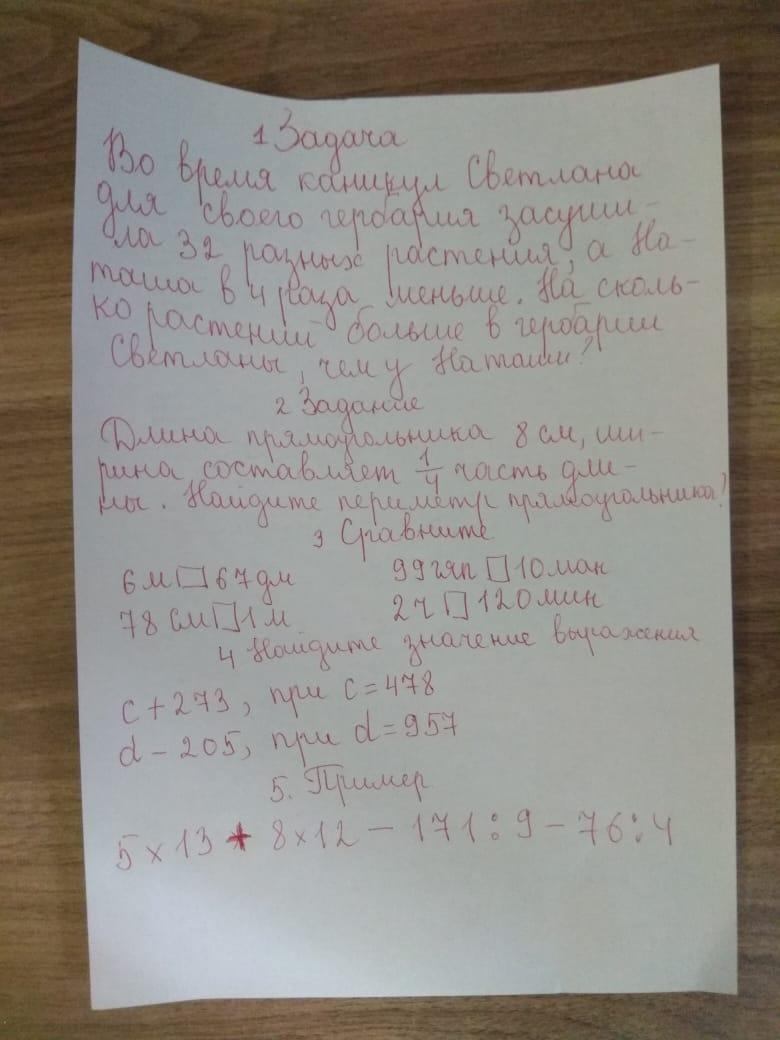 1 Задача
Во время каникул Светлана
для своего гербария засуши-
ла 32 разных растения, а На-
таша в 4 раза меньше. На сколь-
ко растений больше в гербарии
Светланы, чем у Наташи?
2 Задание
Длина прямоугольника 8 см, ши-
рина составляет 1/4 часть дли-
ны. Найдите периметр прямоугольника!
3 Сравните
6м□67дм 99гяп□10ман
78см□1м 2ч□120мин
4 Найдите значение выражения
c+273, при c=478
d-205, при d=957
5. Пример
5×13+8×12-171:9-76:4